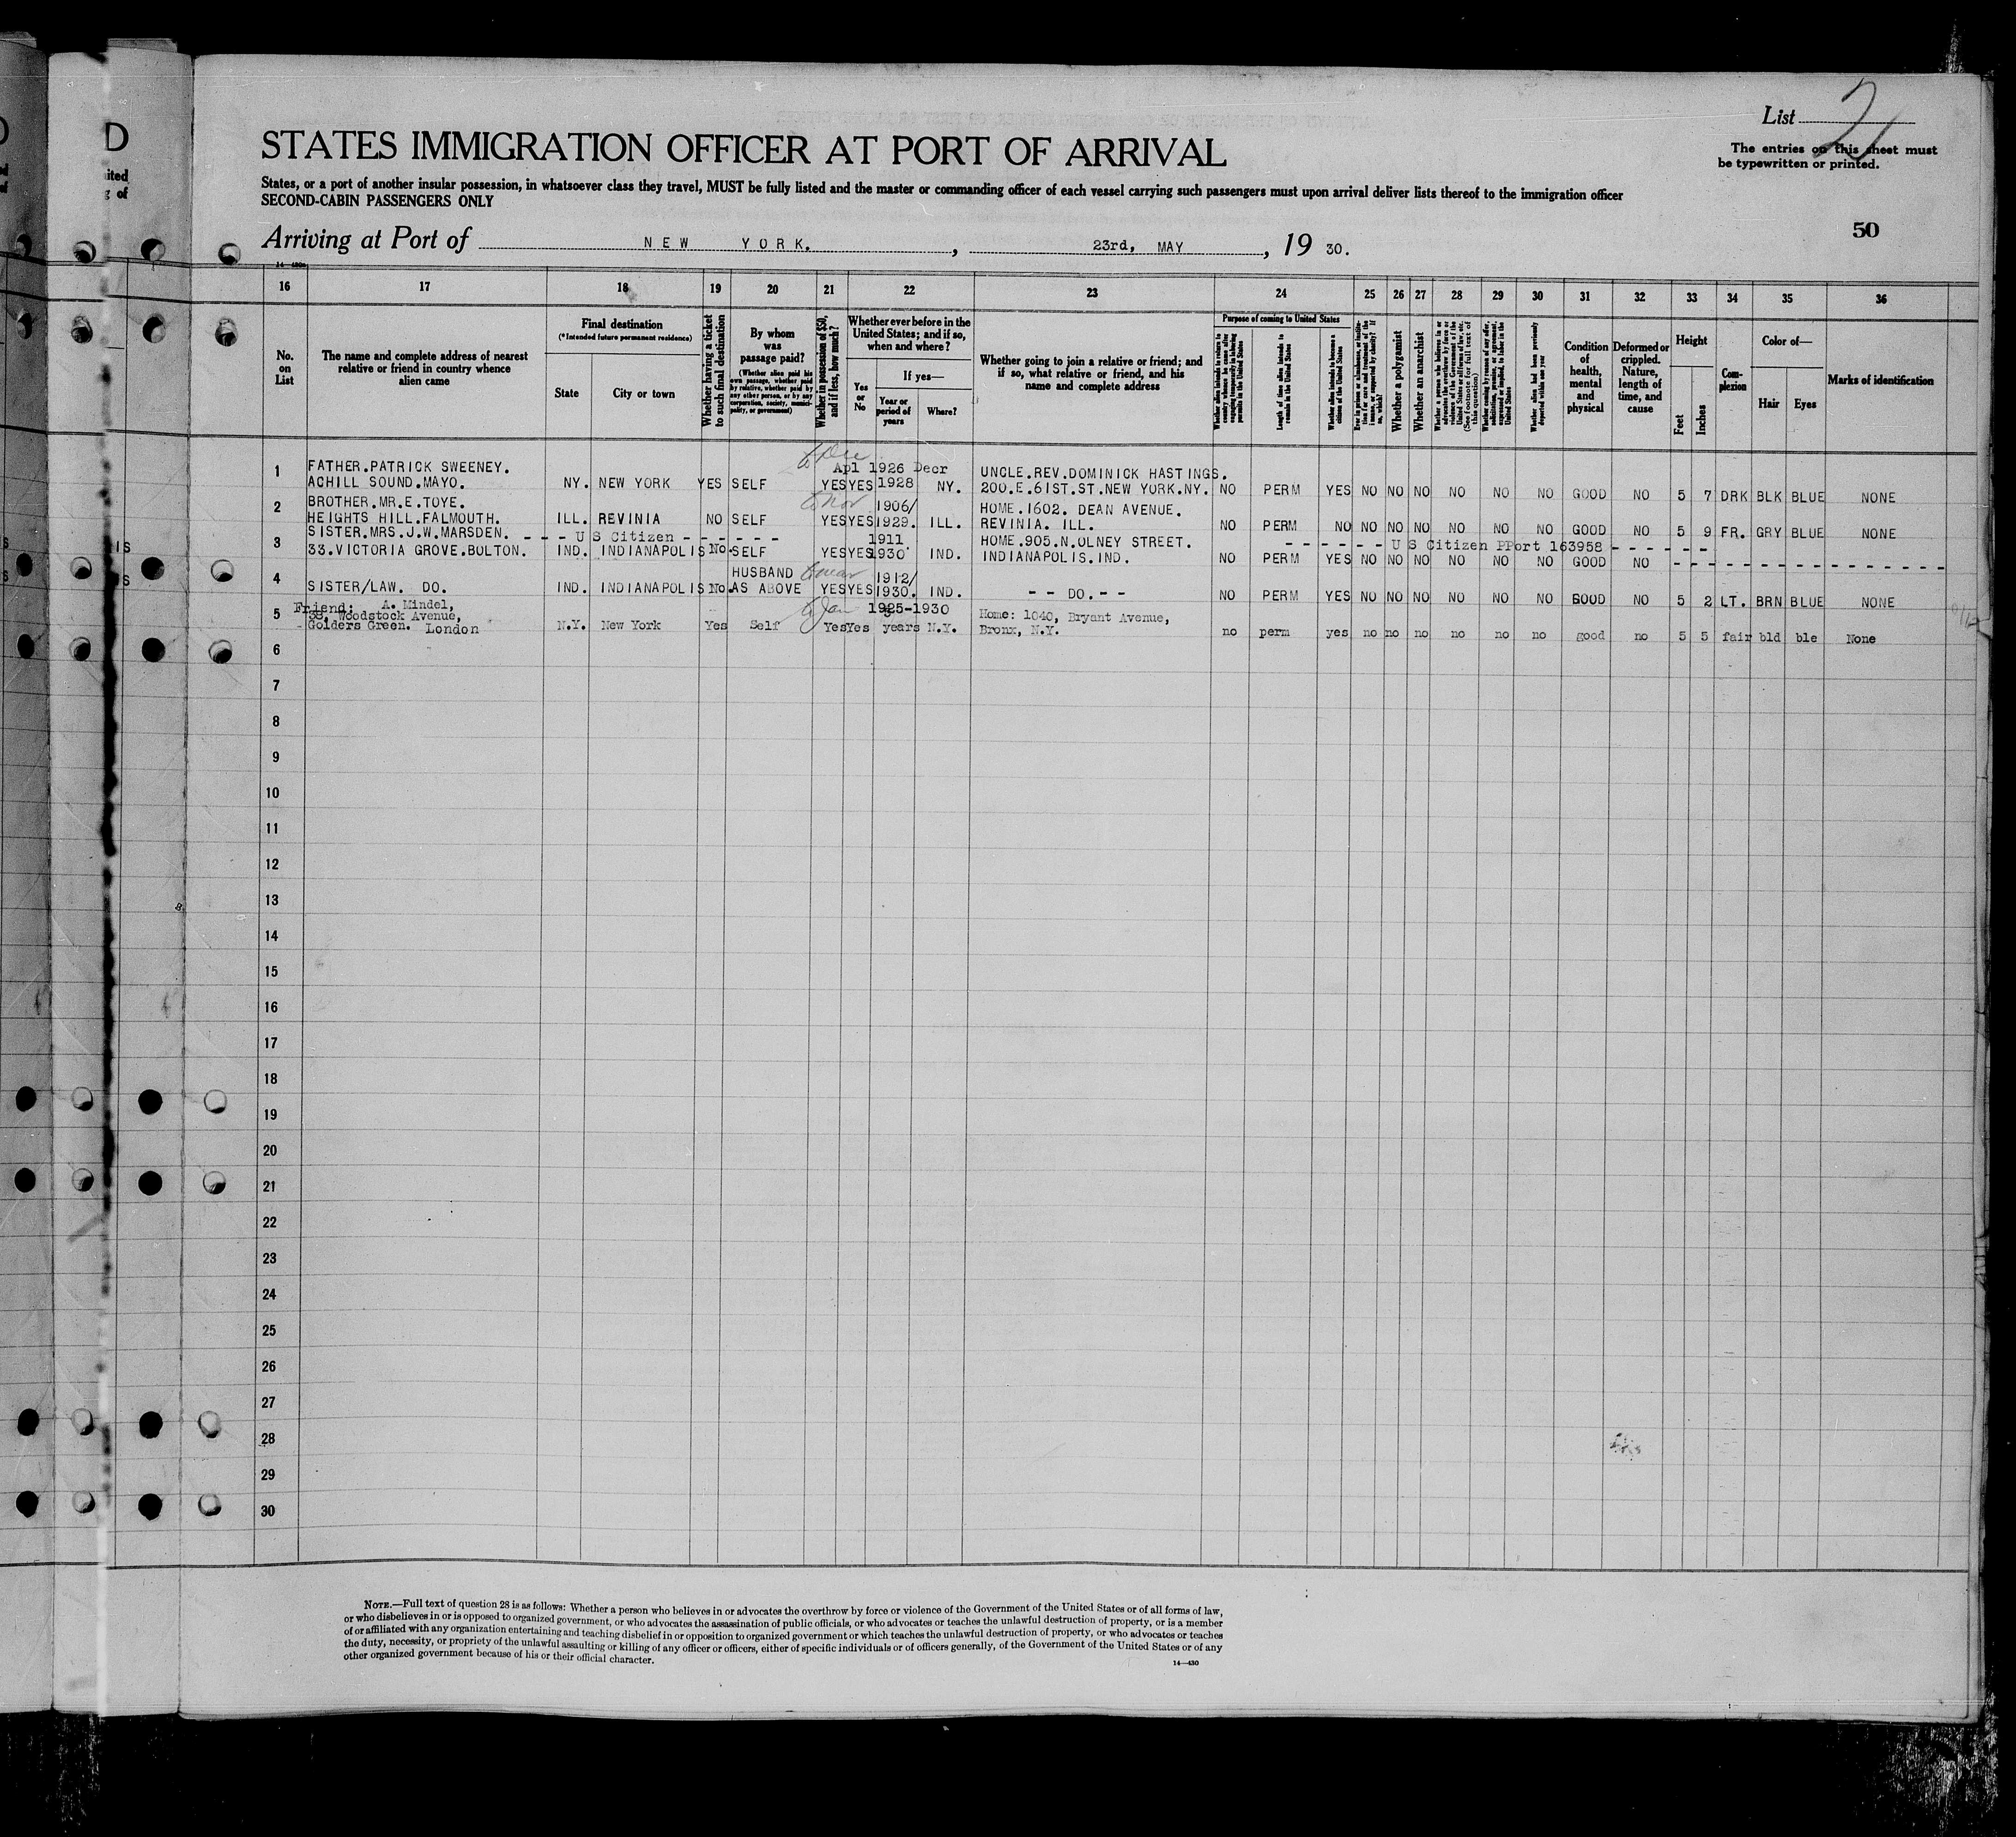 List 2
The entries on this sheet must
be typewritten or printed.
D
STATES IMMIGRATION OFFICER AT PORT OF ARRIVAL
ited
g of
States, or a port of another insular possession, in whatsoever class they travel, MUST be fully listed and the master or commanding officer of each vessel carrying such passengers must upon arrival deliver lists thereof to the immigration officer
SECOND-CABIN PASSENGERS ONLY
50
Arriving at Port of NEW YORK. , 23rd, MAY , 19 30.
16 17 18 19 20 21 22 23 24 25 26 27 28 29 30 31 32 33 34 35 36
No. on List
The name and complete address of nearest relative or friend in country whence alien came
Final destination
(*Intended future permanent residence)
State
City or town
Whether having a ticket to such final destination
By whom was passage paid?
(Whether alien paid his own passage, whether paid by relative, whether paid by any other person, or by any corporation, society, municipality, or government)
Whether in possession of $50, and if less, how much?
Whether ever before in the United States; and if so, when and where?
Yes or No
If yes—
Year or period of years
Where?
Whether going to join a relative or friend; and if so, what relative or friend, and his name and complete address
Purpose of coming to United States
Whether alien intends to return to country whence he came after engaging temporarily in laboring pursuits in the United States
Length of time alien intends to remain in the United States
Whether alien intends to become a citizen of the United States
Ever in prison or almshouse, or institution for care and treatment of the insane, or supported by charity? If so, which?
Whether a polygamist
Whether an anarchist
Whether a person who believes in or advocates the overthrow by force or violence of the Government of the United States or all forms of law, etc. (See footnote for full text of this question)
Whether coming by reason of any offer, solicitation, promise, or agreement, expressed or implied, to labor in the United States
Whether alien had been previously deported within one year
Condition of health, mental and physical
Deformed or crippled. Nature, length of time, and cause
Height
Feet
Inches
Complexion
Color of—
Hair
Eyes
Marks of identification
1 FATHER.PATRICK SWEENEY. Apl 1926 Decr UNCLE.REV.DOMINICK HASTINGS.
ACHILL SOUND.MAYO. NY. NEW YORK YES SELF YES YES 1928 NY. 200.E.61ST.ST.NEW YORK.NY. NO PERM YES NO NO NO NO NO NO GOOD NO 5 7 DRK BLK BLUE NONE
2 BROTHER.MR.E.TOYE. Nov 1906/ HOME.1602. DEAN AVENUE.
HEIGHTS HILL.FALMOUTH. ILL. REVINIA NO SELF YES YES 1929. ILL. REVINIA. ILL. NO PERM NO NO NO NO NO NO NO GOOD NO 5 9 FR. GRY BLUE NONE
3 SISTER.MRS.J.W.MARSDEN. - - - U S Citizen - - - - - - 1911 HOME.905.N.OLNEY STREET. - - - - - - U S Citizen PPort 163958 - - - - - -
33.VICTORIA GROVE.BOLTON. IND. INDIANAPOLIS No. SELF YES YES 1930. IND. INDIANAPOLIS.IND. NO PERM YES NO NO NO NO NO NO GOOD NO - - - - - - - - - - - - - - - - -
4 HUSBAND 1912/
SISTER/LAW. DO. IND. INDIANAPOLIS No. AS ABOVE YES YES 1930. IND. - - DO.- - NO PERM YES NO NO NO NO NO NO GOOD NO 5 2 LT. BRN BLUE NONE
5 Friend: A. Mindel, Jan 1925-1930
38, Woodstock Avenue, 5 Home: 1040, Bryant Avenue,
Golders Green. London N.Y. New York Yes Self Yes Yes years N.Y. Bronx, N.Y. no perm yes no no no no no no good no 5 5 fair bld ble None
6
7
8
9
10
11
12
13
14
15
16
17
18
19
20
21
22
23
24
25
26
27
28
29
30
NOTE.—Full text of question 28 is as follows: Whether a person who believes in or advocates the overthrow by force or violence of the Government of the United States or of all forms of law,
or who disbelieves in or is opposed to organized government, or who advocates the assassination of public officials, or who advocates or teaches the unlawful destruction of property, or is a member
of or affiliated with any organization entertaining and teaching disbelief in or opposition to organized government or which teaches the unlawful destruction of property, or who advocates or teaches
the duty, necessity, or propriety of the unlawful assaulting or killing of any officer or officers, either of specific individuals or of officers generally, of the Government of the United States or of any
other organized government because of his or their official character.
14—430